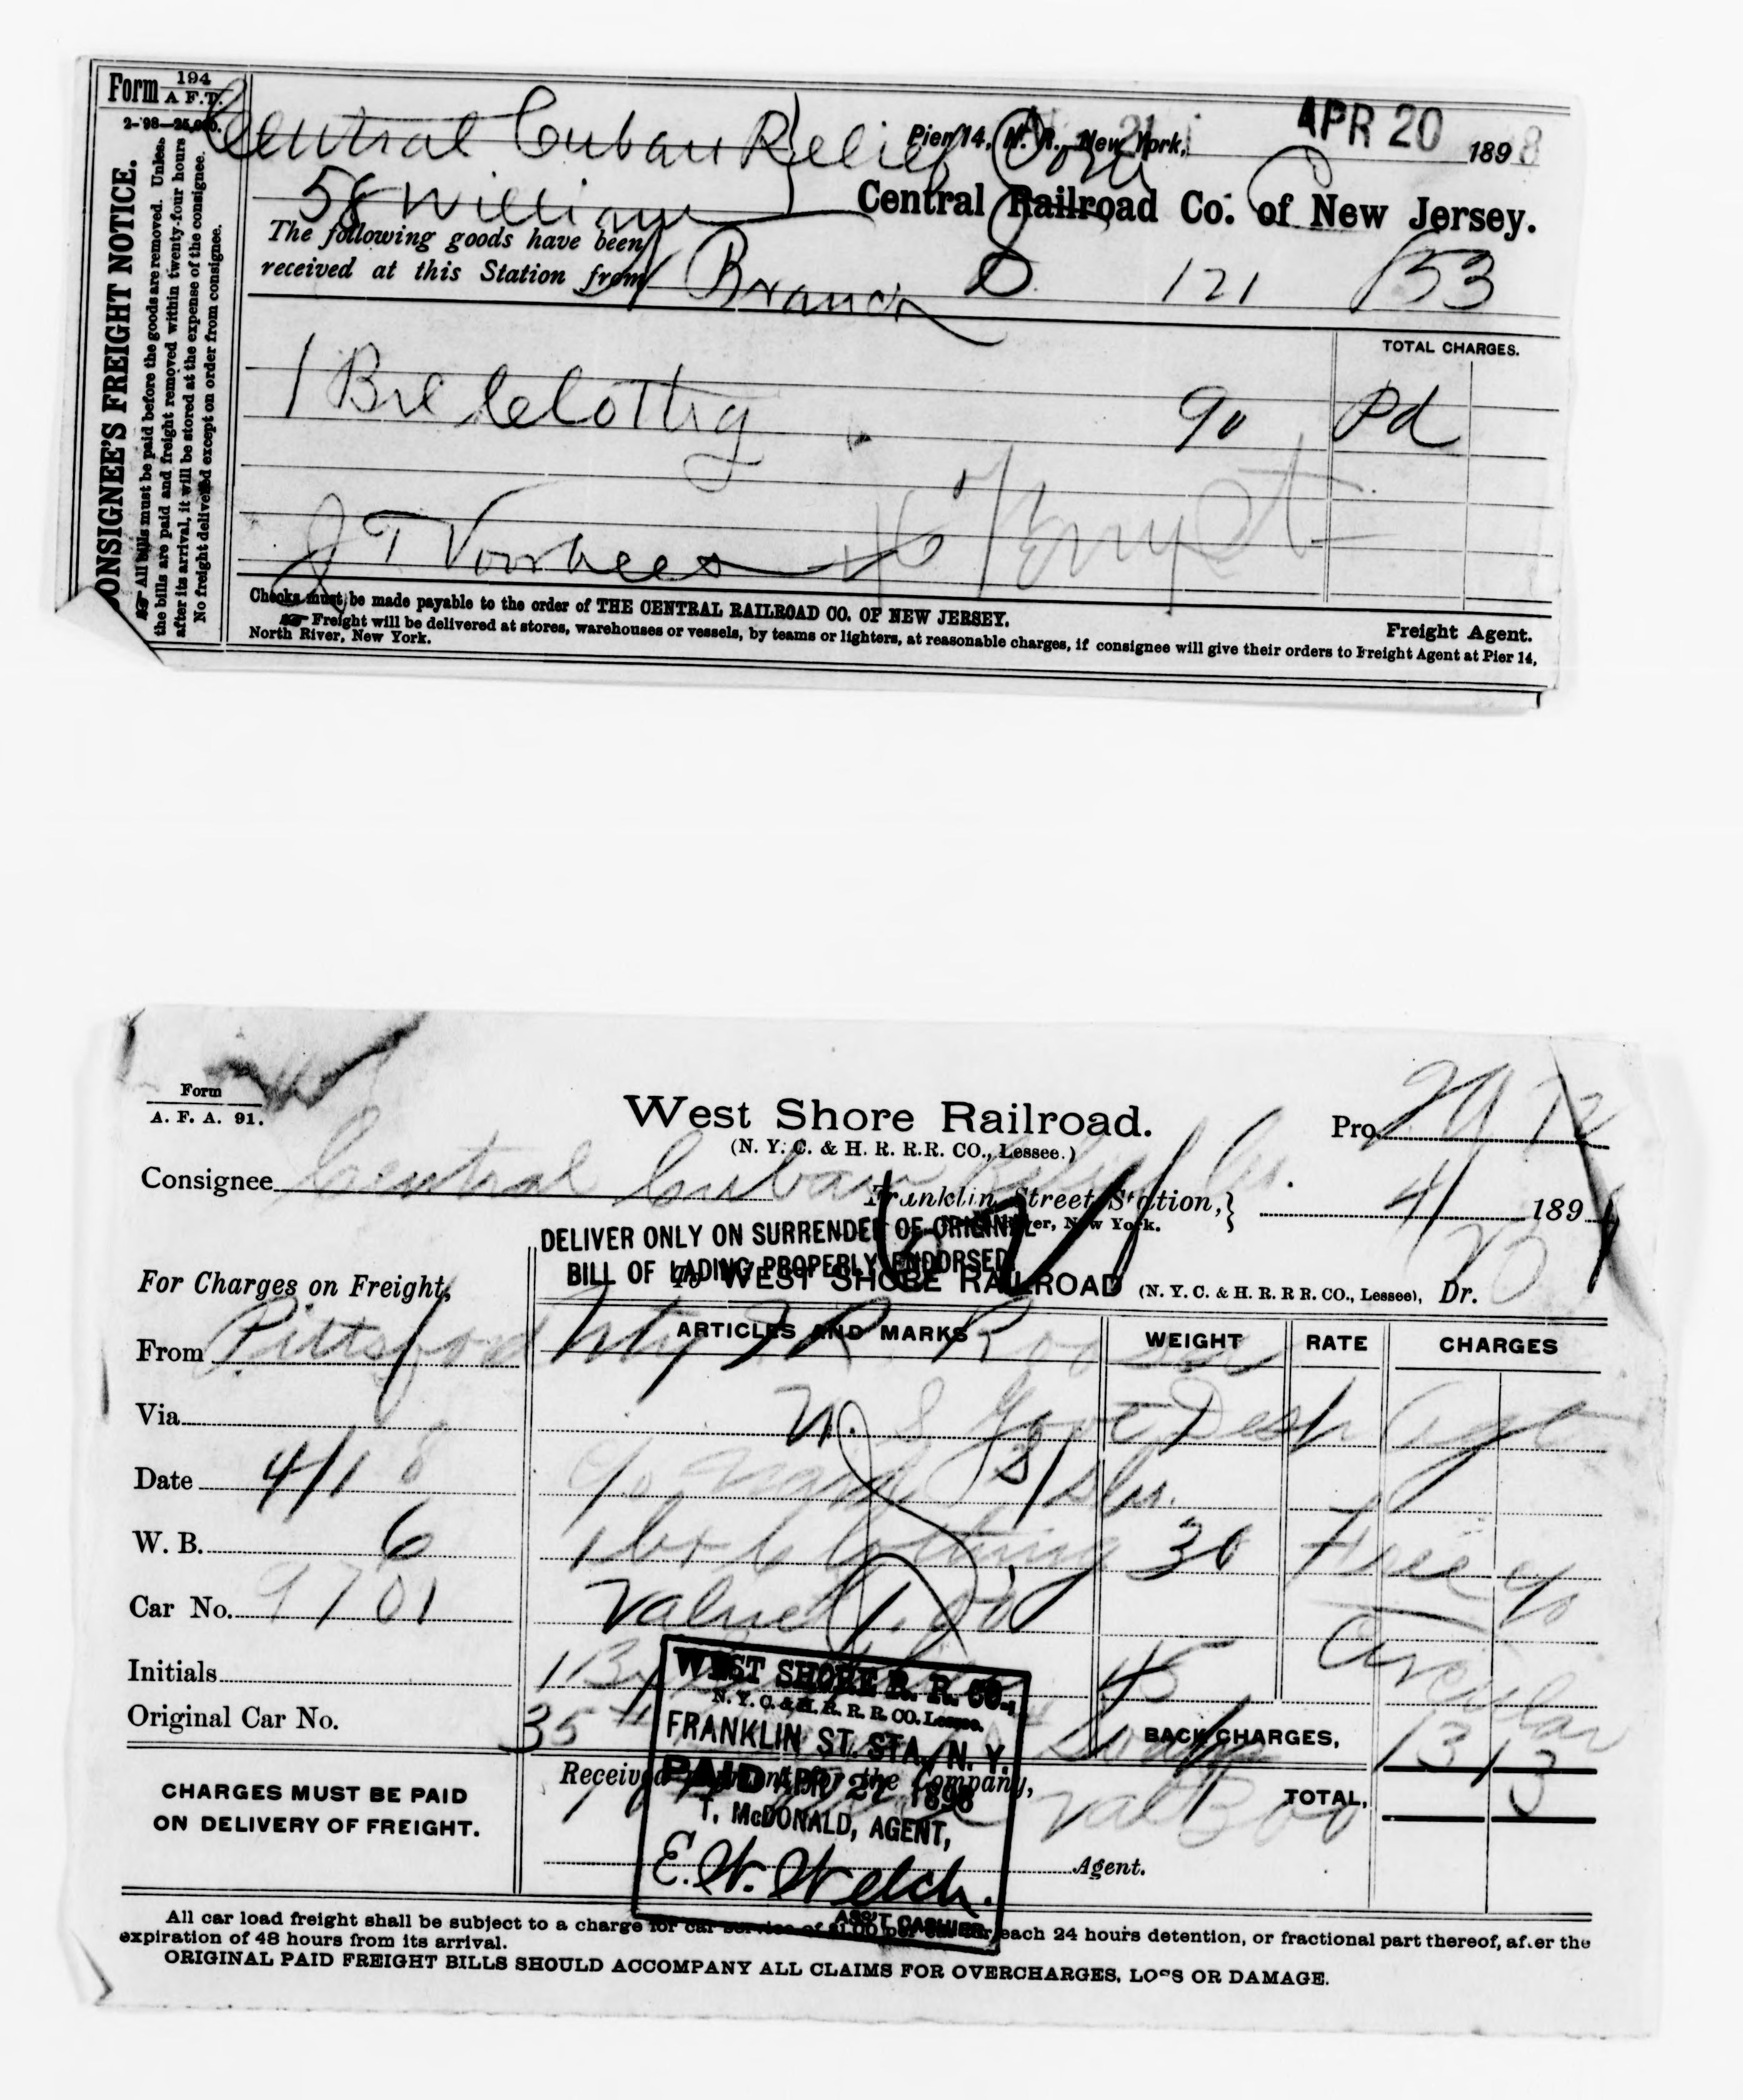 Form 194
A F.T.
2-'98—25,000.
CONSIGNEE'S FREIGHT NOTICE.
All bills must be paid before the goods are removed. Unless
the bills are paid and freight removed within twenty-four hours
after its arrival, it will be stored at the expense of the consignee.
No freight delivered except on order from consignee.
Central Cuban Relief Com
Pier 14, N. R., New York, APR 20 1898
58 William
Central Railroad Co. of New Jersey.
The following goods have been
received at this Station from Branch 121 153
TOTAL CHARGES.
1 Clothg 90 Pd
J T Voorhees
Checks must be made payable to the order of THE CENTRAL RAILROAD CO. OF NEW JERSEY.
Freight Agent.
Freight will be delivered at stores, warehouses or vessels, by teams or lighters, at reasonable charges, if consignee will give their orders to Freight Agent at Pier 14,
North River, New York.
Form
A. F. A. 91.
West Shore Railroad.
(N. Y. C. & H. R. R.R. CO., Lessee.)
Pro 2972
Consignee Central Cuban Relief Co.
Franklin Street Station,
River, New York. 4/ 189
20
DELIVER ONLY ON SURRENDER OF ORIGINAL
BILL OF LADING PROPERLY ENDORSED
For Charges on Freight,
To WEST SHORE RAILROAD (N. Y. C. & H. R. R R. CO., Lessee), Dr.
ARTICLES AND MARKS WEIGHT RATE CHARGES
From Pittsford
Via U. S. Govt Desp Agt
Date 4/18
W. B. 6 1 bx Clothing 30 Free
Car No. 9701 Value
Initials 1 Bx 45 Circular
Original Car No. 35 BACK CHARGES, 13 13
WEST SHORE R. R. CO.,
N. Y. C. & H. R. R. R. CO. Lessee.
FRANKLIN ST. STA., N. Y.
PAID APR 27 1898
T. McDONALD, AGENT,
E. W. Welch.
ASS'T CASHIER
CHARGES MUST BE PAID
ON DELIVERY OF FREIGHT.
Received payment for the Company,
TOTAL,
Agent.
All car load freight shall be subject to a charge for car service of $1.00 per car for each 24 hours detention, or fractional part thereof, after the
expiration of 48 hours from its arrival.
ORIGINAL PAID FREIGHT BILLS SHOULD ACCOMPANY ALL CLAIMS FOR OVERCHARGES, LOSS OR DAMAGE.